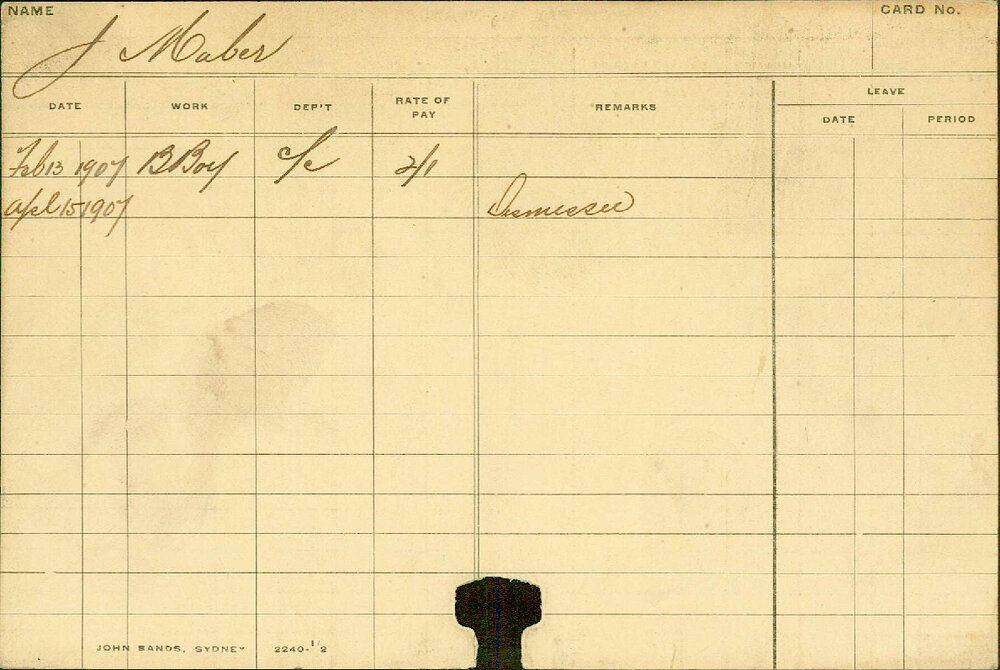 NAME J Maber CARD No.
LEAVE
DATE WORK DEP'T RATE OF PAY REMARKS DATE PERIOD
Feb 13 1907 B Boy C/C 2/1
Apl 15 1907 Dismissed
JOHN SANDS, SYDNEY 2240-1/2